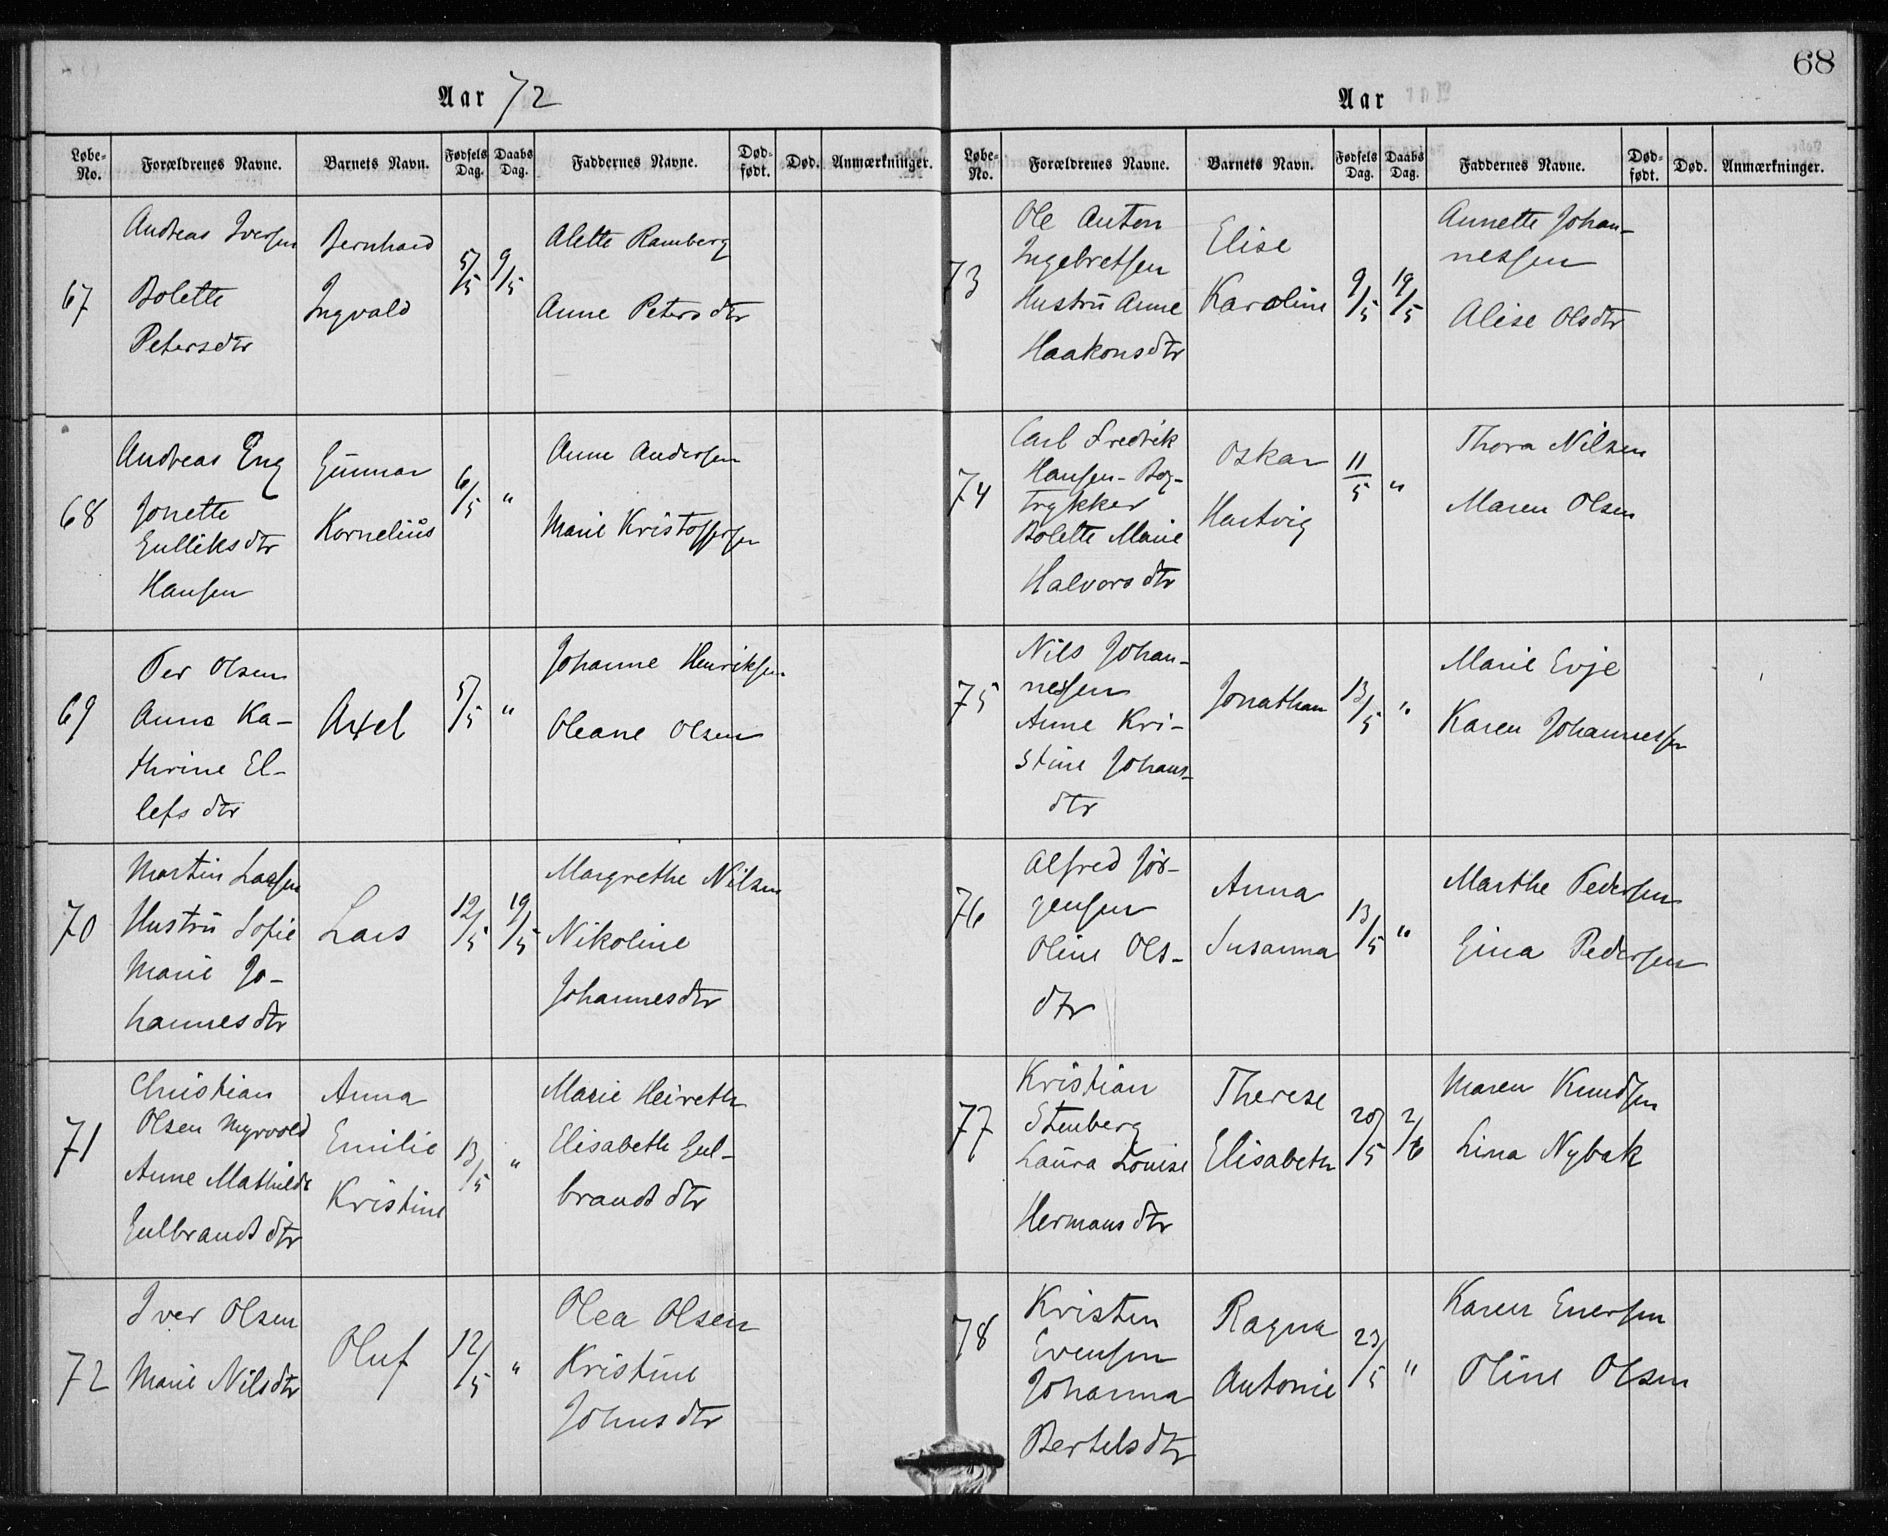 68
Aar 72
Løbe-No. Forældrenes Navne. Barnets Navn. Fødsels Dag. Daabs Dag. Faddernes Navne. Død-født. Død. Anmærkninger.
67
Andreas Iversen
Bolette
Petersdtr
Bernhard
Ingvald
5/5
9/5
Alette Ramberg
Anne Petersdtr
68
Andreas Eng
Jonette
Gulliksdtr
Hansen
Gunnar
Kornelius
6/5
"
Anne Andersen
Marie Kristoffersen
69
Per Olsen
Anna Ka-
thrine El-
lefsdtr
Axel
5/5
"
Johanne Henriksen
Oleane Olsen
70
Martin Larsen
Hustru Sofie
Marie Jo-
hannesdtr
Lars
12/5
19/5
Margrethe Nilsen
Nikoline
Johannesdtr
71
Christian
Olsen Myrvold
Anne Mathilde
Gulbrandsdtr
Anna
Emilie
Kristine
13/5
"
Marie Heireth
Elisabeth Gul-
brandsdtr
72
Iver Olsen
Marie Nilsdtr
Oluf
12/5
"
Olea Olsen
Kristine
Johnsdtr
Aar
Løbe-No. Forældrenes Navne. Barnets Navn. Fødsels Dag. Daabs Dag. Faddernes Navne. Død-født. Død. Anmærkninger.
73
Ole Anton
Ingebretsen
Hustru Anne
Haakonsdtr
Elise
Karoline
9/5
19/5
Annette Johan-
nessen
Alise Olsdtr
74
Carl Fredrik
Hansen-Bog-
trykker
Bolette Marie
Halvorsdtr
Oskar
Hartvig
11/5
"
Thora Nilsen
Maren Olsen
75
Nils Johan-
nessen
Anne Kri-
stine Johans-
dtr
Jonathan
13/5
"
Marie Evje
Karen Johannessen
76
Alfred Jør-
gensen
Oline Ols-
dtr
Anna
Susanna
13/5
"
Marthe Pedersen
Gina Pedersen
77
Kristian
Stenberg
Laura Louise
Hermansdtr
Therese
Elisabeth
20/5
2/6
Maren Knudsen
Lina Nybak
78
Kristen
Evensen
Johanna
Bertelsdtr
Ragna
Antonie
23/5
"
Karen Enersen
Oline Olsen